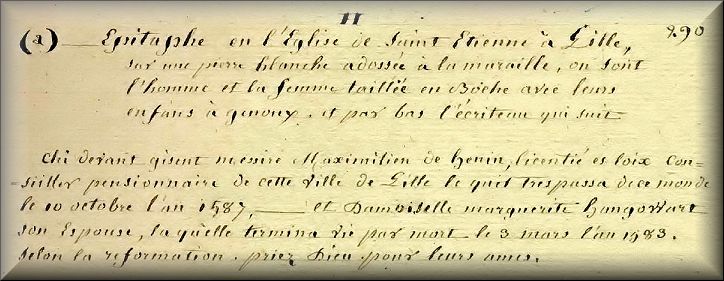 H
290
(a) — Epitaphe en l'Eglise de Saint Etienne à Lille,
sur une pierre blanche adossée à la muraille, on sont
l'homme et la femme taillée en Boche avec leurs
enfans à genoux. et par bas l'écriteau qui suit
Chi devant gisent messire Maximilien de henin, licentié es loix con=
=seiller pensionnaire de cette ville de Lille le quel trespassa de ce monde
le 10 octobre l'an 1587, — et Damoiselle marguerite hangowart
son Espouse, la qu'elle termina vie par mort le 3 mars l'an 1583.
selon la reformation. priez Dieu pour leurs ames.